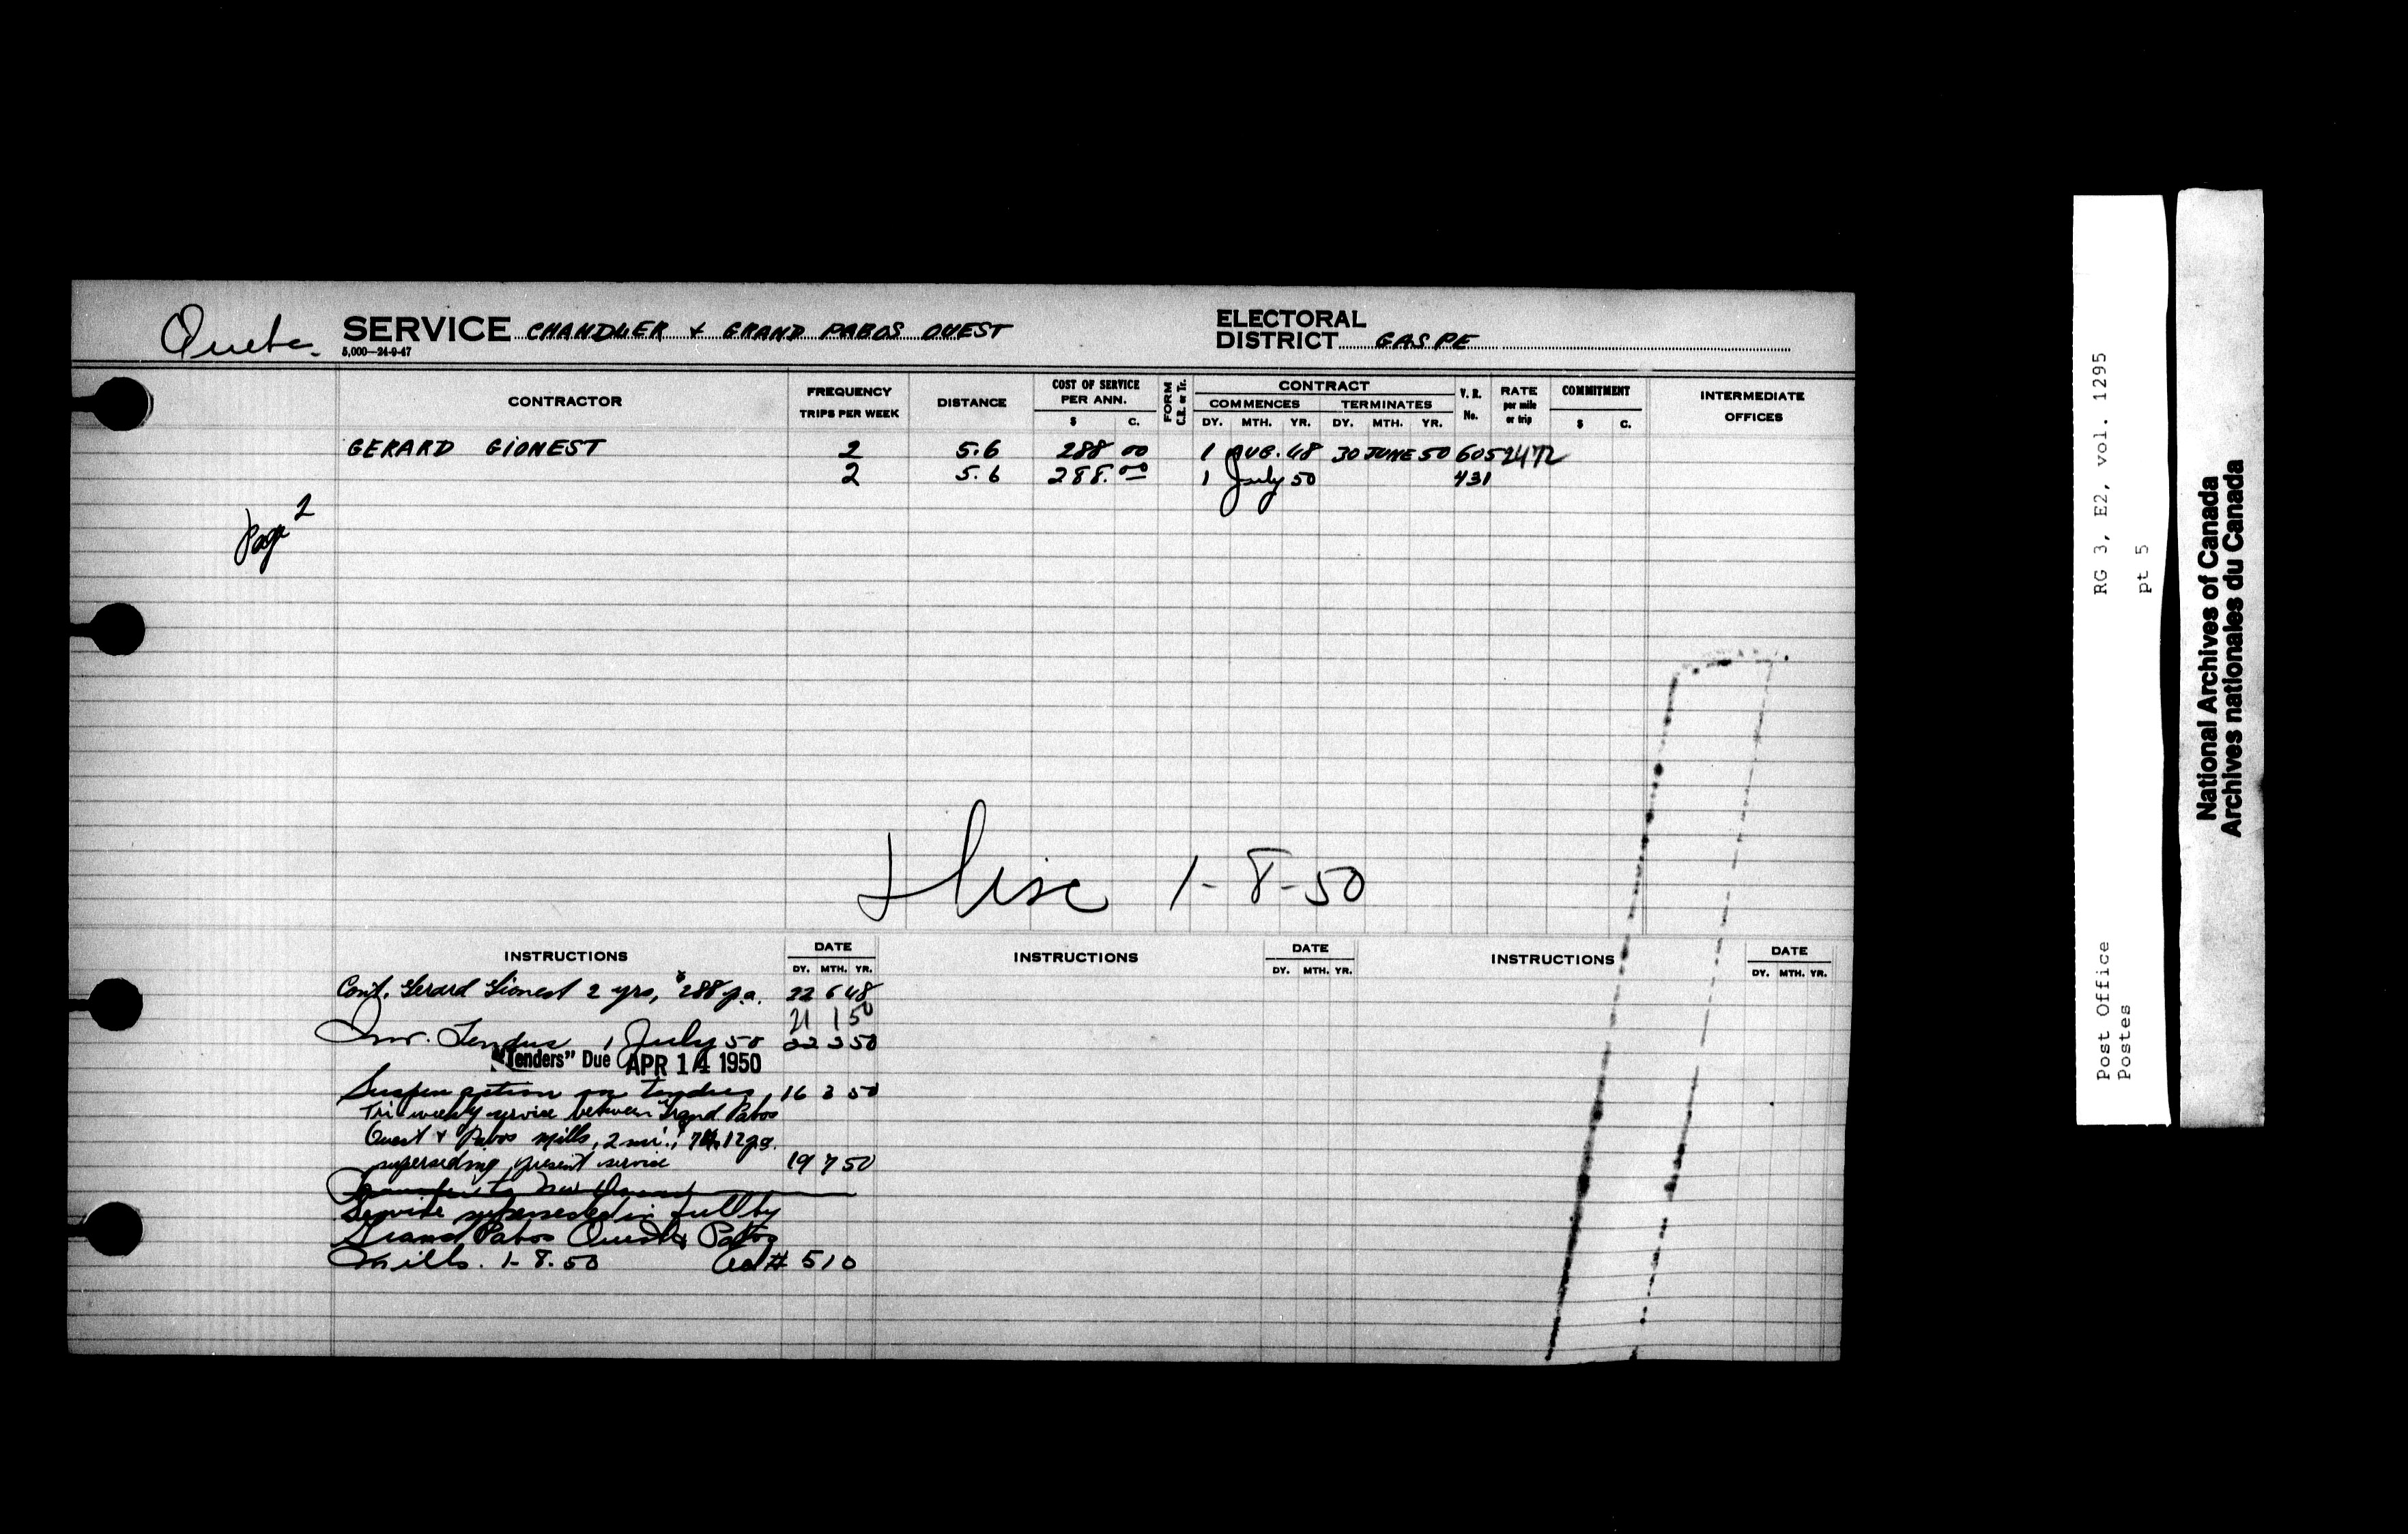 Quebec
SERVICE CHANDLER & GRAND PABOS OUEST
5,000—24-9-47
ELECTORAL
DISTRICT GASPE
CONTRACTOR
FREQUENCY
TRIPS PER WEEK
DISTANCE
COST OF SERVICE
PER ANN.
$ C.
FORM
C.R. or Tr.
CONTRACT
COMMENCES TERMINATES
DY. MTH. YR. DY. MTH. YR.
V. R.
No.
RATE
per mile
or trip
COMMITMENT
$ C.
INTERMEDIATE
OFFICES
GERARD GIONEST 2 5.6 288 00 1 AUG. 48 30 JUNE 50 605 2472
2 5.6 288.00 1 July 50 431
Page 2
Disc 1-8-50
INSTRUCTIONS DATE INSTRUCTIONS DATE INSTRUCTIONS DATE
DY. MTH. YR. DY. MTH. YR. DY. MTH. YR.
Cont. Gerard Gionest 2 yrs, $288 p.a. 22 6 48
21 1 50
Inv. Tenders 1 July 50 22 2 50
"Tenders" Due APR 14 1950
Suspen action on tenders 16 3 50
Tri-weekly service between Grand Pabos
Ouest & Pabos Mills, 2 mi., 12 p.a.
superseding present service 19 7 50
Service superseded in full by
Grand Pabos Ouest & Pabos
Mills. 1-8-50 # 510
RG 3, E2, vol. 1295
pt 5
Post Office
Postes
National Archives of Canada
Archives nationales du Canada